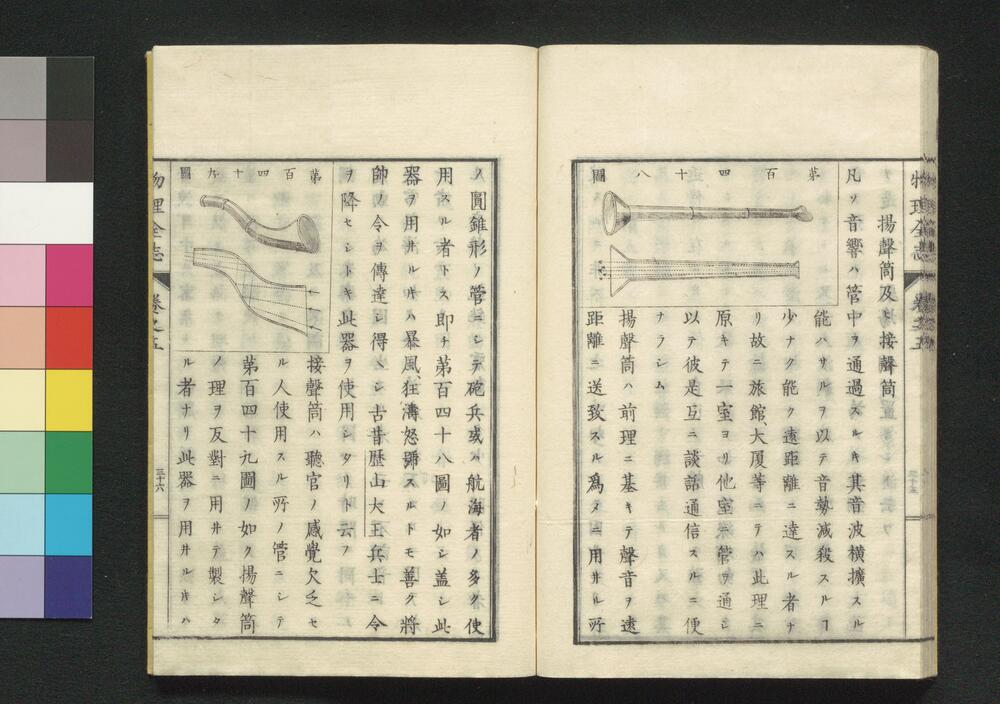 物理全志
卷之五
揚聲筒及ヒ接聲筒
凡ソ音響ハ管中ヲ通過スル𪜈其音波横擴スル
能ハサルヲ以テ音勢減殺スルヿ
少ナク能ク遠距離ニ達スル者ナ
リ故ニ旅館、大厦等ニテハ此理ニ
原キテ一室ヨリ他室ニ管ヲ通シ
以テ彼是互ニ談話通信スルニ便
ナラシム
揚聲筒ハ前理ニ基キテ聲音ヲ遠
距離ニ送致スル爲メニ用井ル所
第百四十八圖
ノ圓錐形ノ管ニシテ砲兵或ハ航海者ノ多ク使
用スル者トス即チ第百四十八圖ノ如シ蓋シ此
器ヲ用井ル𪜈ハ暴風、狂濤怒號スルトモ善ク將
帥ノ令ヲ傳達シ得ヘシ古昔歷山大王兵士ニ令
ヲ降セシトキ此器ヲ使用シタリト云フ
接聲筒ハ聽官ノ感覺欠乏セ
ル人使用スル所ノ管ニシテ
第百四十九圖ノ如ク揚聲筒
ノ理ヲ反對ニ用井テ製シタ
ル者ナリ此器ヲ用井ル𪜈ハ
第百四十九圖
物理全志
卷之五
三十六